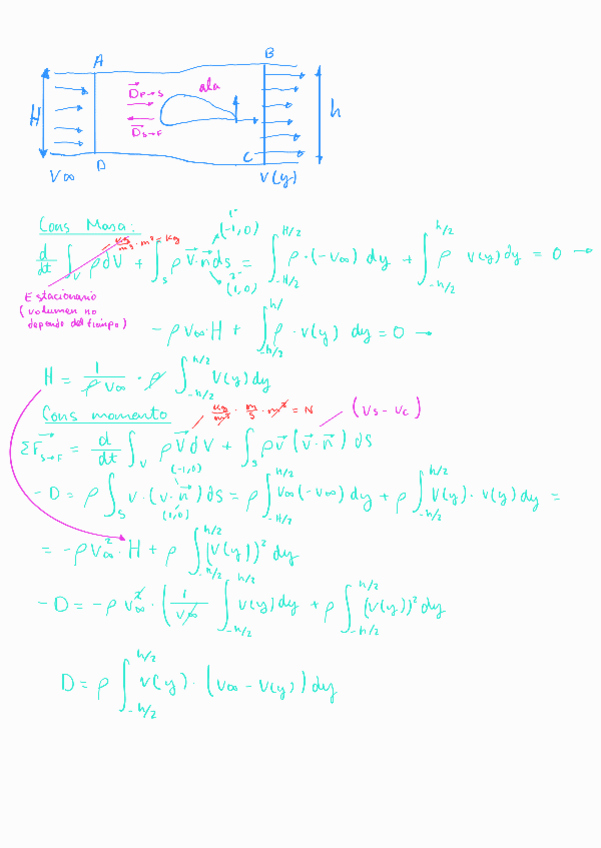 A B
H D⃗F→S ala h
D⃗S→F
D C
V∞ V(y)
Cons Masa:
kg/m³ · m³ = kg (-1,0)
d/dt ∫_V ρ dV + ∫_S ρ V⃗·n⃗ ds = ∫_{-H/2}^{H/2} ρ·(-V∞) dy + ∫_{-h/2}^{h/2} ρ V(y) dy = 0 →
(1,0)
Estacionario
(volumen no
depende del tiempo)
-ρ V∞·H + ∫_{-h/2}^{h/} ρ · V(y) dy = 0 →
H = 1/(ρ V∞) · ρ ∫_{-h/2}^{h/2} V(y) dy
Cons momento
kg/m³ · m/s · m³ = N (Vs - Vc)
ΣF⃗S→F = d/dt ∫_V ρ V⃗ dV + ∫_S ρ v⃗ (v⃗·n⃗) ds
(-1,0)
-D = ρ ∫_S v·(v·n⃗) ds = ρ ∫_{-H/2}^{H/2} V∞(-V∞) dy + ρ ∫_{-h/2}^{h/2} V(y) · V(y) dy =
(1,0)
= -ρ V∞² · H + ρ ∫_{-h/2}^{h/2} (V(y))² dy
-D = -ρ V∞² · (1/V∞ ∫_{-h/2}^{h/2} V(y) dy + ρ ∫_{-h/2}^{h/2} (V(y))² dy
D = ρ ∫_{-h/2}^{h/2} V(y) · (V∞ - V(y)) dy